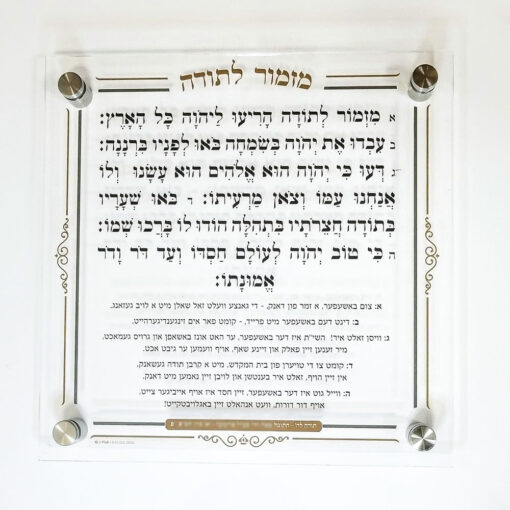 מזמור לתודה
א מִזְמוֹר לְתוֹדָה הָרִיעוּ לַיהֹוָה כָּל הָאָרֶץ:
ב עִבְדוּ אֶת יְהֹוָה בְּשִׂמְחָה בֹּאוּ לְפָנָיו בִּרְנָנָה:
ג דְּעוּ כִּי יְהֹוָה הוּא אֱלֹהִים הוּא עָשָׂנוּ וְלוֹ
אֲנַחְנוּ עַמּוֹ וְצֹאן מַרְעִיתוֹ: ד בֹּאוּ שְׁעָרָיו
בְּתוֹדָה חֲצֵרֹתָיו בִּתְהִלָּה הוֹדוּ לוֹ בָּרְכוּ שְׁמוֹ:
ה כִּי טוֹב יְהֹוָה לְעוֹלָם חַסְדּוֹ וְעַד דֹּר וָדֹר
אֱמוּנָתוֹ:
א: צום באשעפער, א זמר פון דאנק, - די גאנצע וועלט זאל שאלן מיט א לויב געזאנג.
ב: דינט דעם באשעפער מיט פרייד, - קומט פאר אים זינגענדיגערהייט.
ג: וויסן זאלט איר! השי"ת איז דער באשעפער, ער האט אונז באשאפן און גרויס געמאכט.
מיר זענען זיין פאלק און זיינע שאף, אויף וועמען ער גיבט אכט.
ד: קומט צו די טויערן פון בית המקדש, מיט א קרבן תודה געשאנק,
אין זיין הויף, זאלט איר בענטשן און לויבן זיין נאמען מיט דאנק.
ה: ווייל גוט איז דער באשעפער, זיין חסד איז אויף אייביגער צייט.
אויף דור דורות, וועט אנהאלטן זיין באגלויבטקייט!